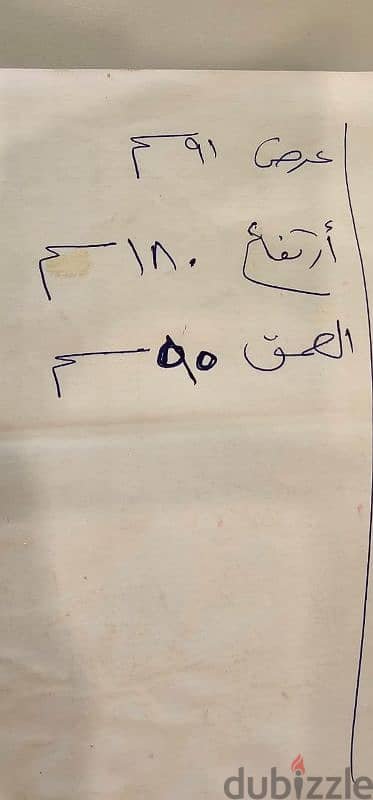 عرض ٩١ سم
أرتفاع ١٨٠ سم
العمق ٩٥ سم
dubizzle